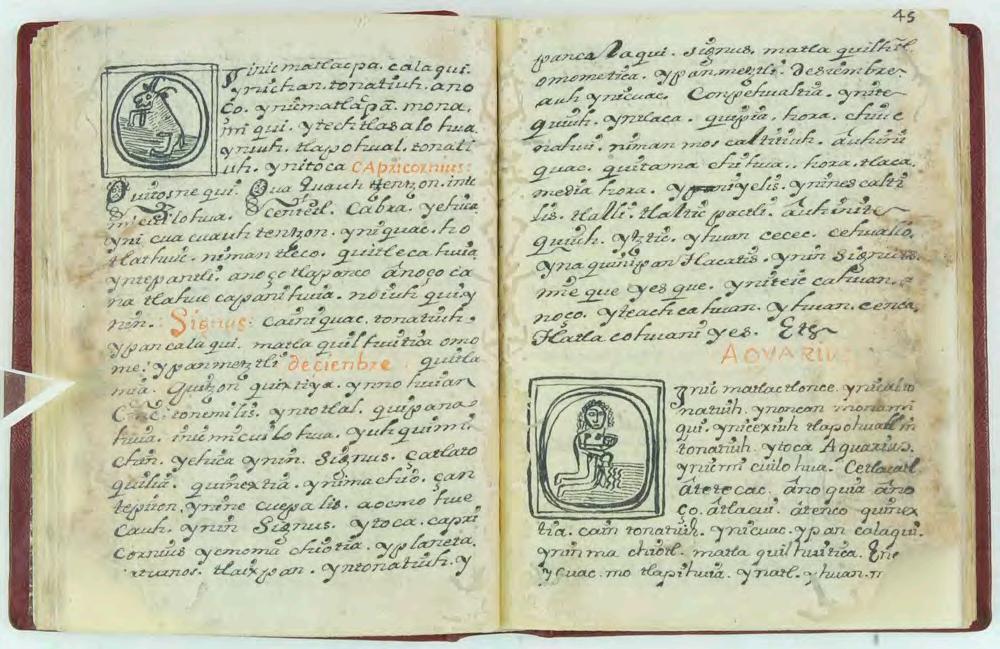 inic matlacpa. cala qui.
ynichan. tonatiuh. ano
ço. ynimatlapā. mona.
mi qui. ytech tlasalo hua.
yniuh. tlapohual. tonati
uh. ynitoca CApricornius:
quitosne qui. Qua quauh tentzon. inic
micuilohua. Centetl. Cabra. yehica
yni cua cuauh tentzon. yniquac. ho
tlathuic. niman tleco. quitleca huia
yntepantli. anoço tlaparco anoço ca
na tlahue capanihuia. noiuh quiy
nin. Signus: cainiquac. tonatiuh
ypan cala qui. matla quilhuitica omo
me. ypan metztli deciembre: quitla
mia. quixtiya. ynno huian
tonemilis. yntotlal. quipana
huia. inic micuilohua. yuh quimi
chin. yehica ynin. Signus. catlato
quilia. quinextia. ynimachio. çan
tepiton. ynine cuepalis. aocmo hue
cauh. ynin Signus. ytoca. capri
cornius yemoma chiotia. yplaneta.
saturnos. tlaixpan. yntonatiuh. y
45
panca laqui. signus. matla quilhtl.
omometica. ypan. metztli. Desiembre
auh ynicuac. Conpehualtia. ynite
quiuh. yntlaca. quipia. hora. chiuc
nahui. niman mos caltitiuh. auhini
quac. quitama chihua. hora. tlaca.
media hora. ypaniyelis. ynines calti
lis. tlalli. tlaltic pactli. auhinite
quiuh. ytztic. yhuan cecec. cehualio.
yna quinipan tlacatis. ynin Signus.
mie que yes que. yniteic cahuan.
noço. yteach ca huan. yhuan. cenca.
tlatla cohuani yes. Etz
AQVARIUS
Inic matlactlonce. ynicalto
natiuh. ynoncan monami
qui. ynicexiuh tlapohual in
tonatiuh. ytoca Aquarius.
ynic mi cuilo hua. Ce tlacatl
atetecac. ano quia ano
ço. atlacui. atenco quinex
tia. cain tonatiuh. ynicuac. ypan calaqui.
ynin ma chiotl. matla quilhuitica. Ene
ycuac. mo tlapihuia. ynatl. yhuan.